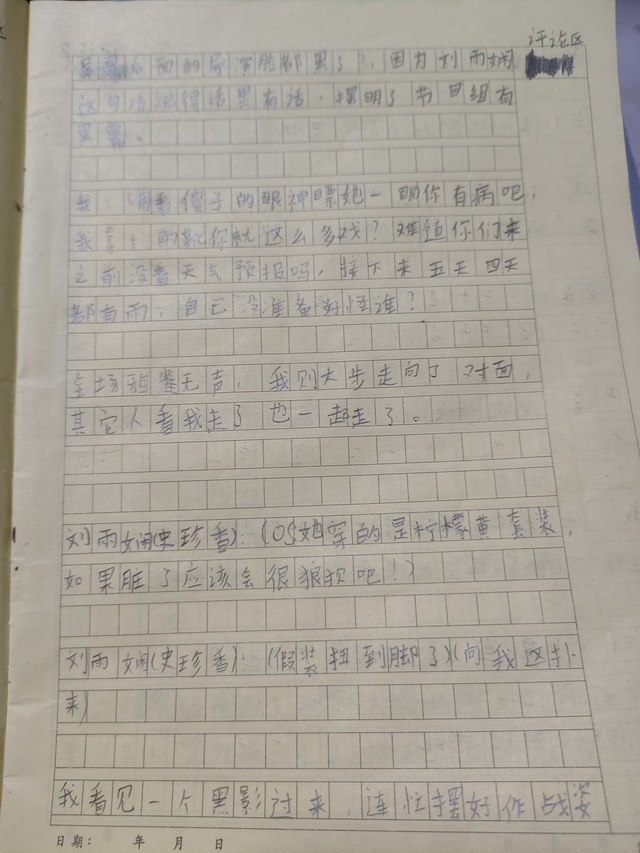 评论区
后面的导演脸都黑了，因为刘雨娴
这句话说得话里有话，摆明了节目组有
黑幕。
我：（用看傻子的眼神瞟她一眼你有病吧，
我 的 你就这么多戏？难道你们来
之前没看天气预报吗，接下来五天四天
都有雨，自己没准备好怪谁？
全场鸦雀无声，我则大步走向了对面，
其它人看我走了也一起走了。
刘雨娴（史珍香）：（OS她穿的是柠檬黄套装，
如果脏了应该会很狼狈吧！）
刘雨娴（史珍香）：（假装扭到脚了）（向我这扑
来）
我看见一个黑影过来，连忙摆好作战姿
日期： 年 月 日